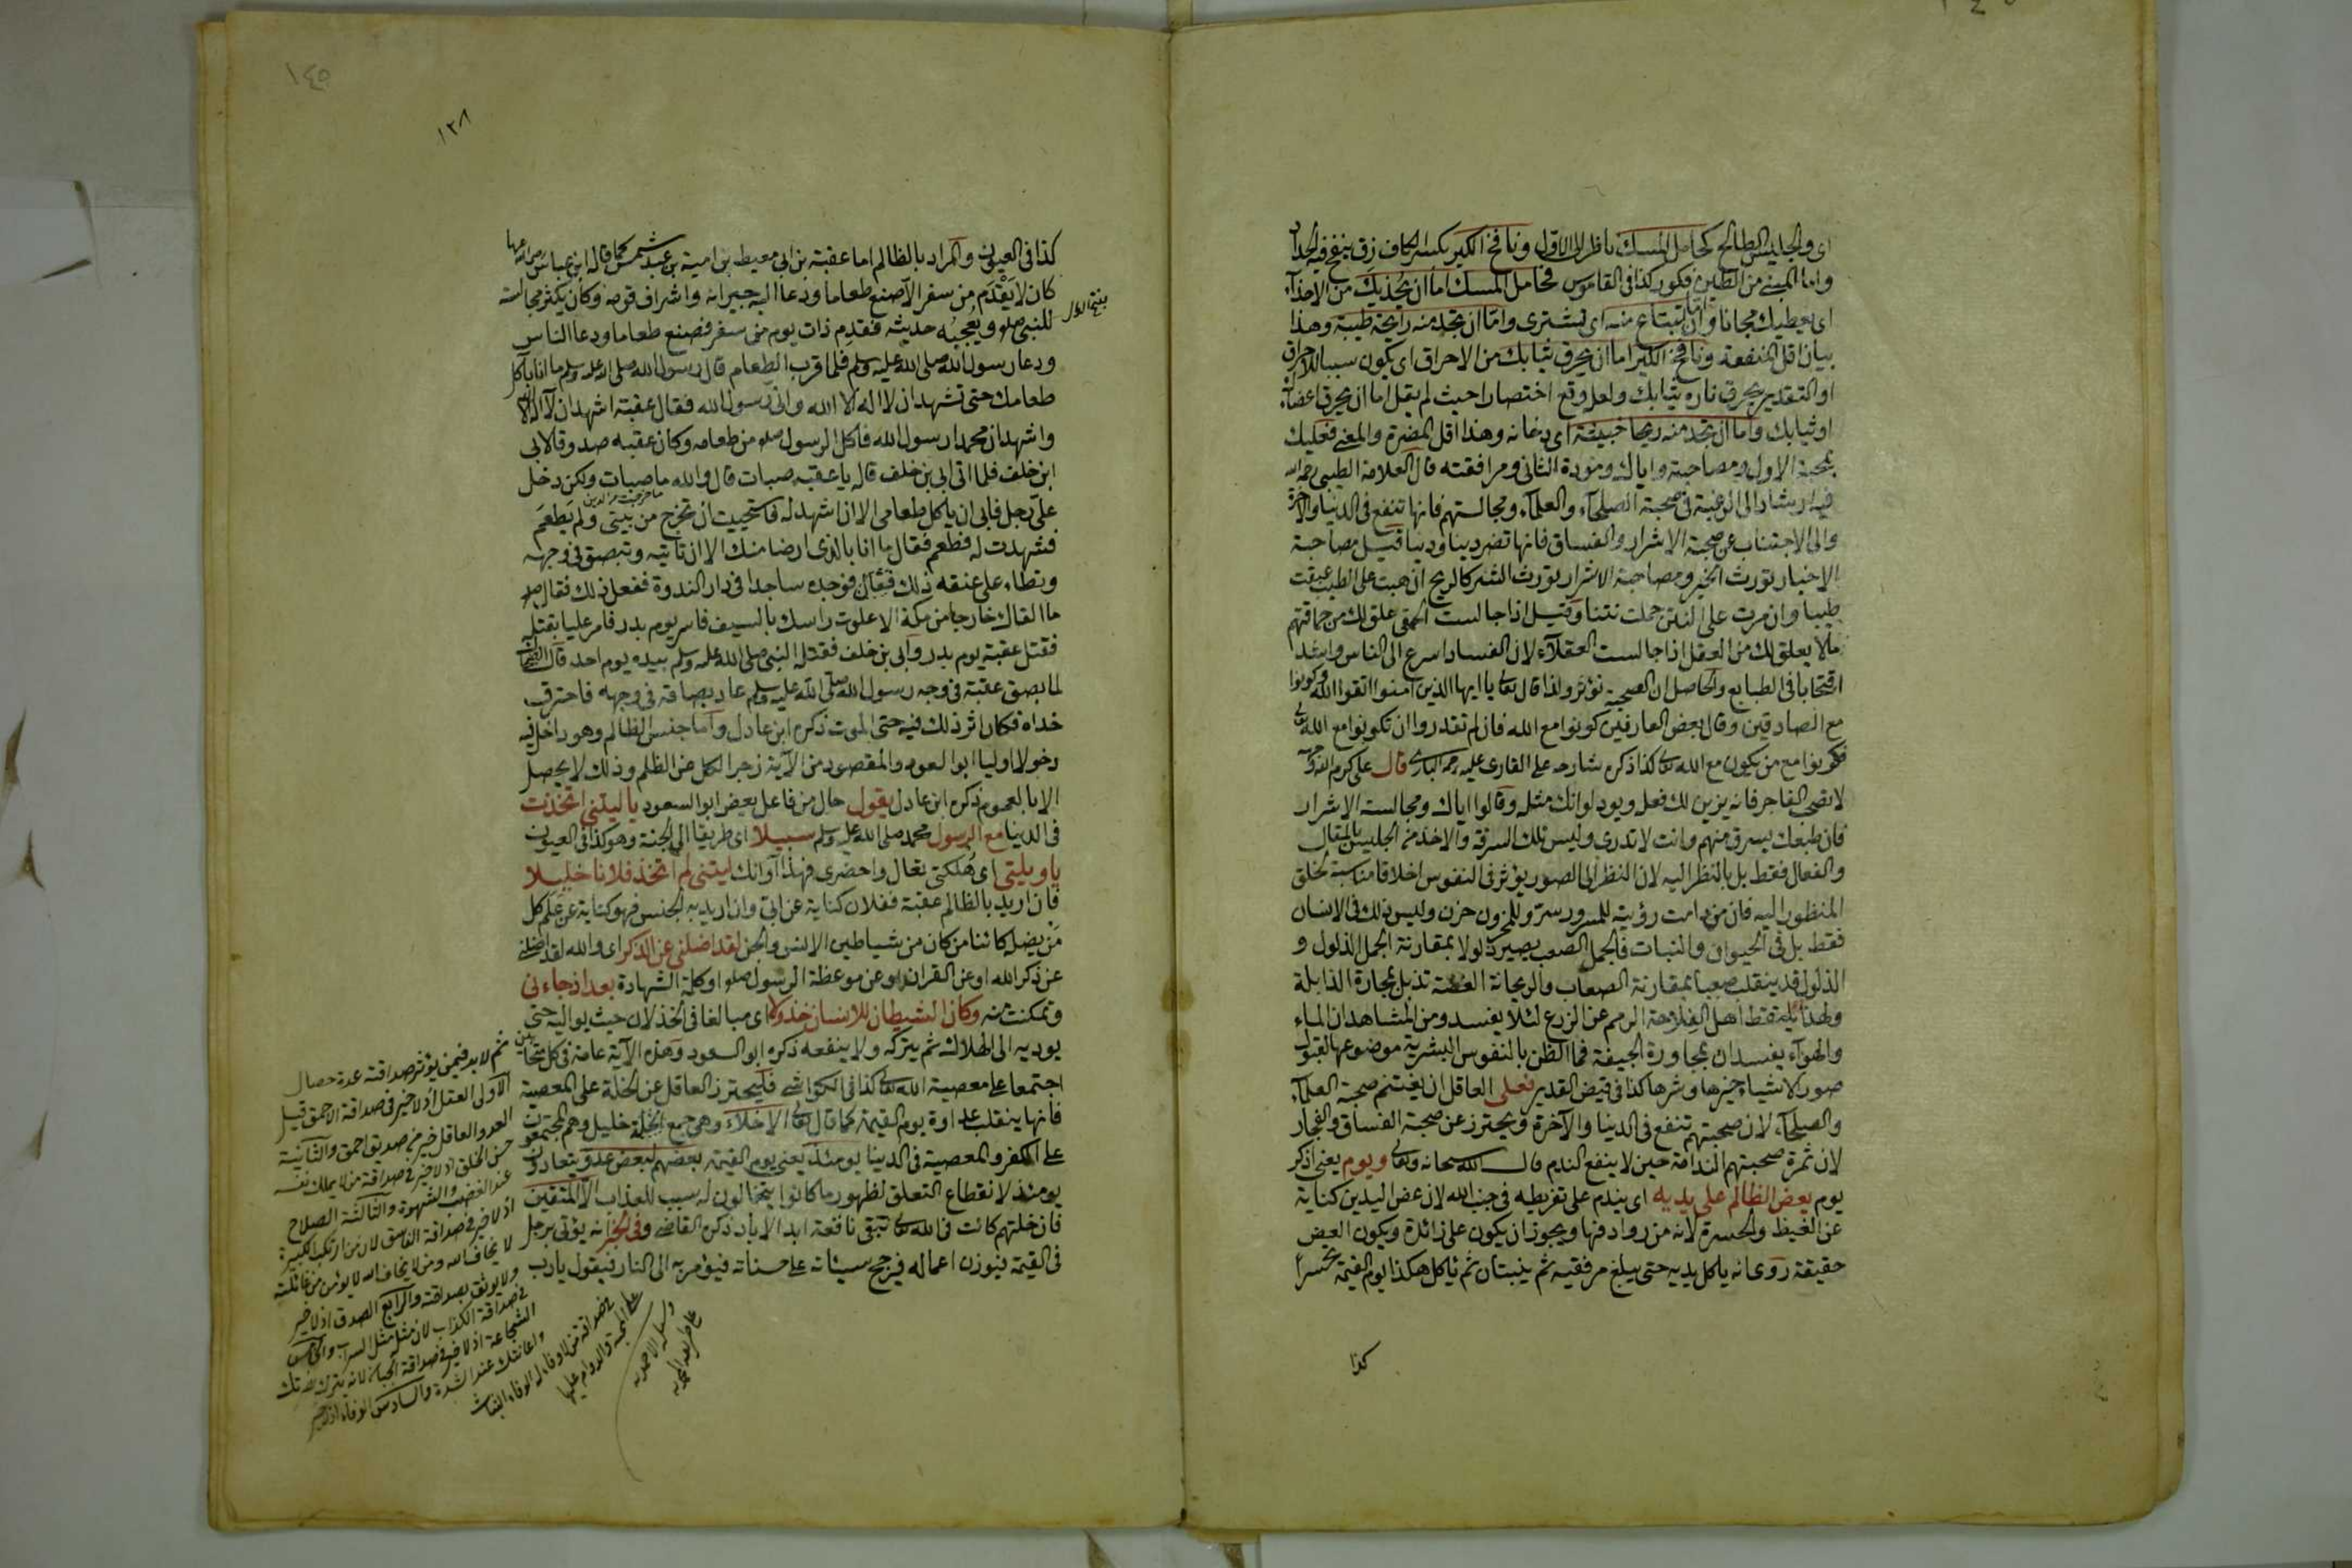 اى والجليس الطالح كحامل المسك ناظر الى الاول ونافخ الكير بكسر الكاف زق ينفخ فيه الحداد
واما المبنى من الطين فكور كذا فى القاموس فحامل المسك اما ان يحذيك من الاحذاء
اى يعطيك مجانا واما ان تبتاع منه اى تشترى واما ان تجد منه رايحة طيبة وهذا
بيان اقل المنفعة ونافخ الكير اما ان يحرق ثيابك من الاحراق اى يكون سببا للاحراق
او التقدير يحرق ناره ثيابك ولعل وقع اختصارا حيث لم يقل اما ان يحرق اعضاءك
او ثيابك واما ان تجد منه ريحا خبيثة اى دخانه وهذا اقل المضرة والمعنى فعليك
بمحبة الاول ومصاحبته واياك ومودة الثانى ومرافقته قال العلامة الطيبى رحمه الله
فيه ارشاد الى الرغبة فى صحبة الصلحاء والعلماء ومجالستهم فانها تنفع فى الدنيا والآخرة
والى الاجتناب عن صحبة الاشرار والفساق فانها تضر دينا ودنيا قيل مصاحبة
الاخيار تورث الخير ومصاحبة الاشرار تورث الشر كالريح ان هبت على الطيب عبقت
طيبا وان مرت على النتن حملت نتنا وقيل اذا جالست الحمقى علق لك من حماقتهم
مالا يعلق لك من العقل اذا جالست العقلاء لان الفساد اسرع الى الناس واشد
اقتحاما فى الطبايع والحاصل ان الصحبة تؤثر ولذا قال تعالى يا ايها الذين آمنوا اتقوا الله وكونوا
مع الصادقين وقال بعض العارفين كونوا مع الله فان لم تقدروا ان تكونوا مع الله تعالى
فكونوا مع من يكون مع الله تعالى كذا ذكره شارحه على القارى عليه رحمة البارى قال على كرم الله وجهه
لا تصحب الفاجر فانه يزين لك فعله ويود لو انك مثله وقالوا اياك ومجالسة الاشرار
فان طبعك يسرق منهم وانت لا تدرى وليس تلك السرقة والاخذ من الجليس بالمقال
والفعال فقط بل بالنظر اليه لان النظر الى الصور يؤثر فى النفوس اخلاقا مناسبة لخلق
المنظور اليه فان من دامت رؤيته للمسرور سرّ وللمحزون حزن وليس ذلك فى الانسان
فقط بل فى الحيوان والنبات فالجمل الصعب يصير ذلولا بمقارنة الجمل الذلول و
الذلول قد ينقلب صعبا بمقارنة الصعاب والريحانة الغضة تذبل بمجاورة الذابلة
ولهذا يلتقط اهل الفلاحة الرمم عن الزرع لئلا يفسد ومن المشاهد ان الماء
والهواء يفسدان بمجاورة الجيفة فما الظن بالنفوس البشرية موضوعها لقبول
صور الاشياء خيرها وشرها كذا فى فيض القدير فعلى العاقل ان يغتنم صحبة العلماء
والصلحاء لان صحبتهم تنفع فى الدنيا والآخرة ويحترز عن صحبة الفساق والفجار
لان ثمرة صحبتهم الندامة حين لا ينفع الندم قال الله سبحانه وتعالى ويوم يعنى اذكر
يوم يعض الظالم على يديه اى يندم على تفريطه فى جنب الله لان عض اليدين كناية
عن الغيظ والحسرة لانه من روادفها ويجوز ان يكون على زائدة ويكون العض
حقيقة روى انه يأكل يديه حتى يبلغ مرفقيه ثم ينبتان ثم يأكل هكذا يوم القيمة تحسرا
كذا
١٤٥
١٣٨
كذا فى العيون والمراد بالظالم اما عقبة بن ابى معيط بن امية بن عبد شمس كما قاله ابن عباس رضى الله عنهما
كان لا يقدم من سفر الا صنع طعاما ودعا اليه جيرانه واشراف قومه وكان يكثر مجالسته
للنبى صلم ويعجبه حديثه فقدم ذات يوم من سفر فصنع طعاما ودعا الناس
ودعا رسول الله صلى الله عليه وسلم فلما قرب الطعام قال رسول الله صلى الله عليه وسلم ما انا بآكل
طعامك حتى تشهد ان لا اله الا الله وانى رسول الله فقال عقبة اشهد ان لا اله الا الله
واشهد ان محمدا رسول الله فاكل الرسول صلم من طعامه وكان عقبه صدوقا لابى
ابن خلف فلما اتى ابى بن خلف قال يا عقبه صبات قال والله ما صبات ولكن دخل
علىّ رجل فابى ان ياكل طعامى الا ان اشهد له فاستحييت ان تخرج من بيتى ولم يطعم
فشهدت له فطعم فقال ما انا بالذى ارضا منك الا ان تاتيه وتبصق فى وجهه
وتطاء على عنقه ذلك فقال فوجده ساجدا فى دار الندوة ففعل ذلك فقال صلم
ما القاك خارجا من مكة الا علوت راسك بالسيف فاسر يوم بدر فامر عليا بقتله
فقتل عقبة يوم بدر وابى بن خلف فقتله النبى صلى الله عليه وسلم بيده يوم احد قال الضحاك
لما بصق عقبة فى وجه رسول الله صلى الله عليه وسلم عاد بصاقه فى وجهه فاحترق
خداه فكان اثر ذلك فيه حتى الموت ذكره ابن عادل واما جنس الظالم وهو داخل فيه
دخولا اوليا ابو السعود والمقصود من الآية زجر الكل عن الظلم وذلك لا يحصل
الا بالعموم ذكره ابن عادل يقول حال من فاعل يعض ابو السعود يا ليتنى اتخذت
فى الدنيا مع الرسول محمد صلى الله عليه وسلم سبيلا اى طريقا الى الجنة وهو كذا فى العيون
يا ويلتى اى هلكتى تعال واحضرى فهذا آوانك ليتنى لم اتخذ فلانا خليلا
فان اريد بالظالم عقبة ففلان كناية عن ابىّ وان اريد به الجنس فهو كناية عن علم كل
من يضله كائنا من كان من شياطين الانس والجن لقد اضلنى عن الذكر اى والله لقد اضلنى
عن ذكر الله او عن القران او عن موعظة الرسول صلم او كلمة الشهادة بعد اذ جاءنى
وتمكنت منه وكان الشيطان للانسان خذولا اى مبالغا فى الخذلان حيث يواليه حتى
يوديه الى الهلاك ثم يتركه ولا ينفعه ذكره ابو السعود وهذه الآية عامة فى كل متحابين
اجتمعا على معصية الله تعالى كذا فى الكواشى فليحترز العاقل عن الخلة على المعصية
فانها ينقلب عداوة يوم القيمة كما قال تعالى الاخلاء وهى جمع الخلة خليل وهم المجتمعون
على الكفر والمعصية فى الدنيا يومئذ يعنى يوم القيمة بعضهم لبعض عدو يتعادون
يومئذ لانقطاع التعلق لظهور ما كانوا يتخالون له سبب للعذاب الا المتقين
فان خلتهم كانت فى الله تعالى تبقى نافعة ابد الاباد ذكره القاضى وفى الخبر انه يؤتى برجل
فى القيمة فيوزن اعماله فيرجح سيئاته على حسناته فيؤمر به الى النار فيقول يا رب
ما خرجت من الدين
ثم لا بد فيمن يؤثر صداقته عدة خصال
الاولى العقل اذ لا خير فى صداقة الاحمق قيل
العدو العاقل خير من صديق احمق والثانية
حسن الخلق اذ لا خير فى صداقة من لا يملك نفسه
عند الغضب والشهوة والثالثة الصلاح
اذ لا خير فى صداقة الفاسق لان من ارتكب الكبيرة
لا يخاف الله ومن لا يخاف الله لا يؤمن من غائلته
ولا يوثق بصداقته والرابع الصدق اذ لا خير
فى صداقة الكذاب لان مثله مثل السراب والخامس
الشجاعة اذ لا خير فى صداقة الجبان لانه يترك نصرتك
واعانتك عند الشدة والسادس الوفاء اذ لا خير
فى صداقة من لا وفاء له الوفاء الثبات
على المحبة والدوام عليها